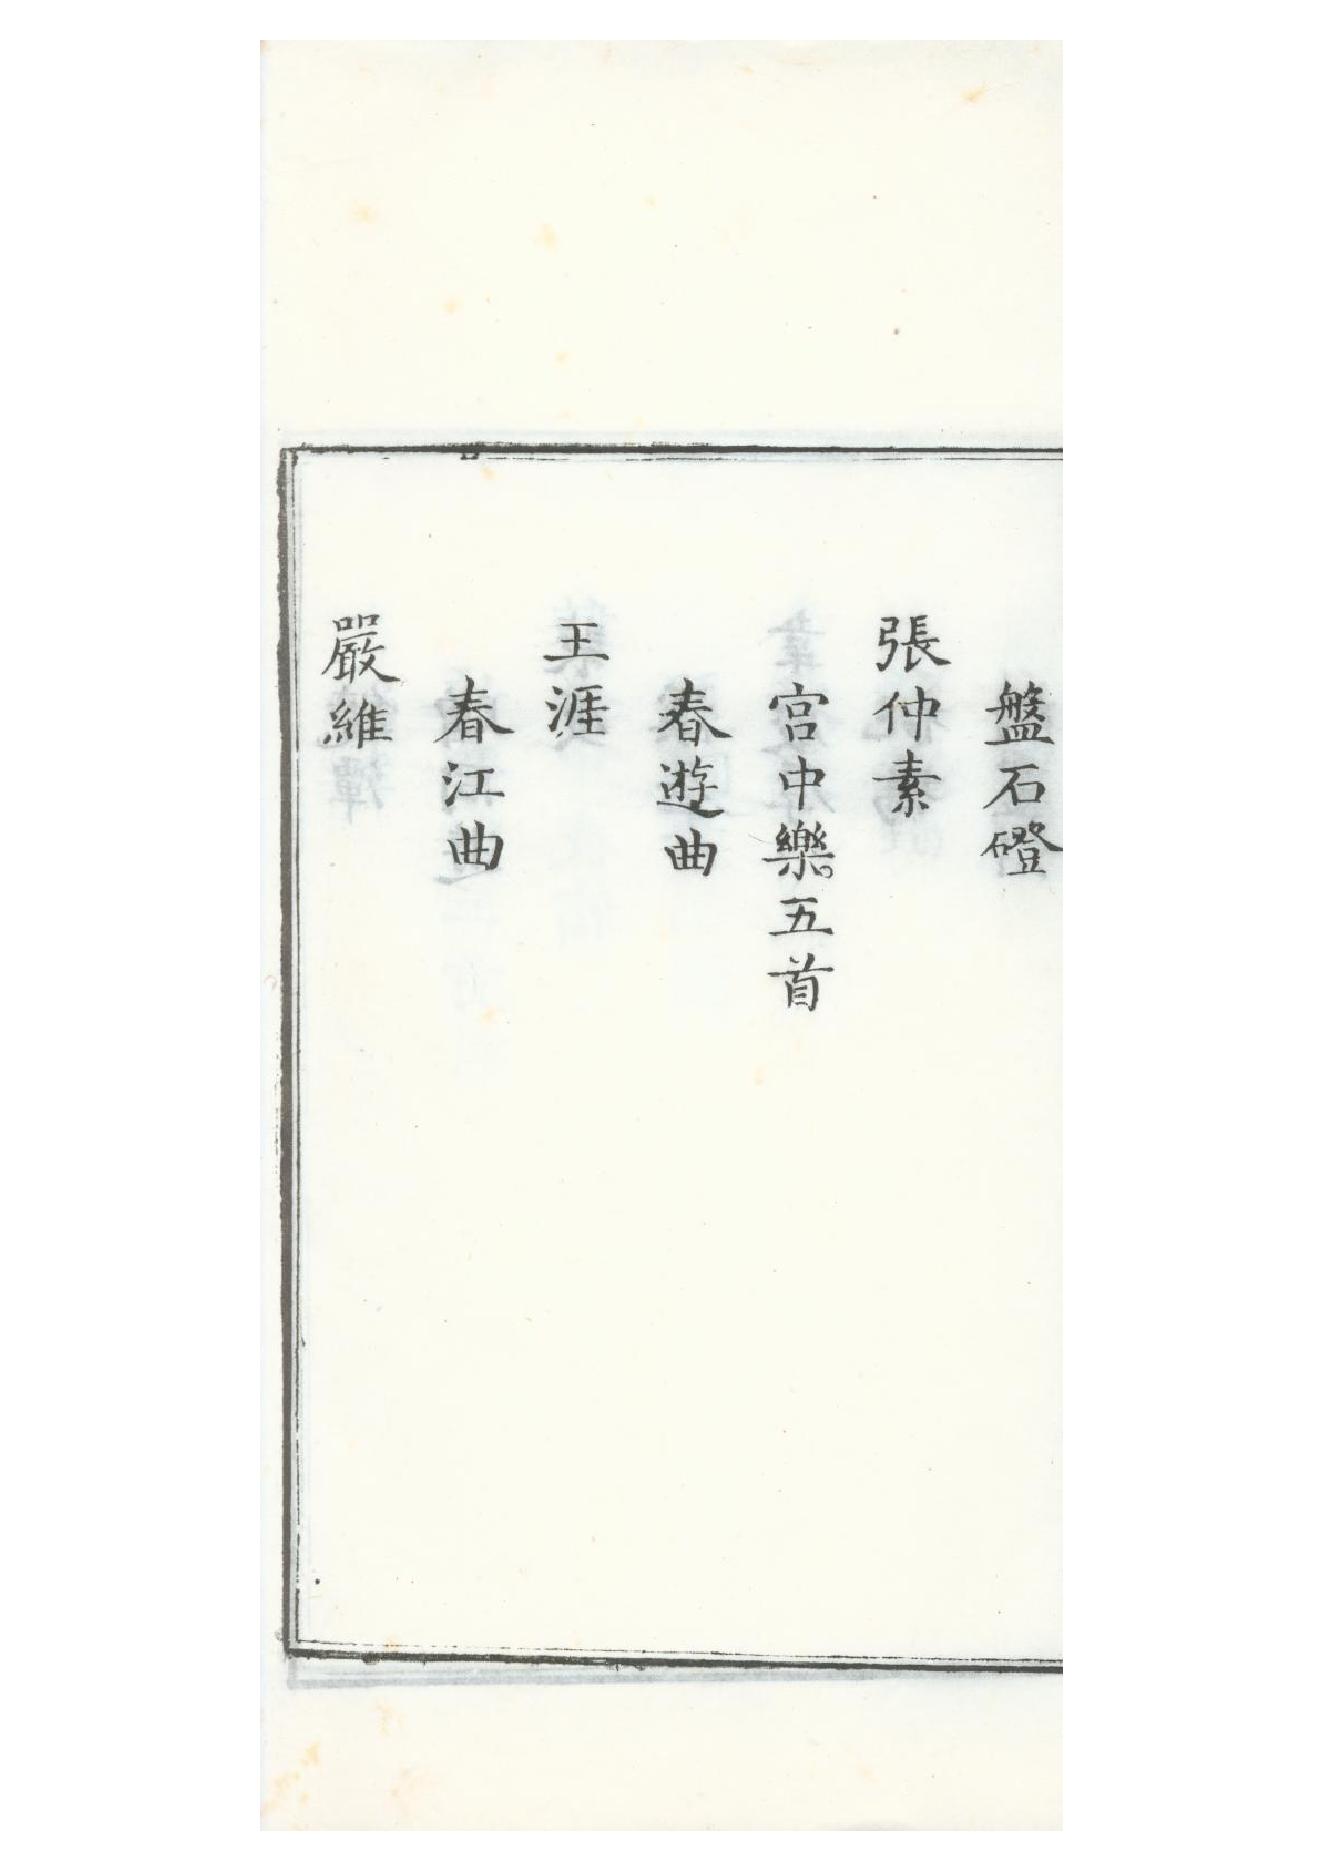 盤石磴
張仲素
宮中樂五首
春遊曲
王涯
春江曲
嚴維